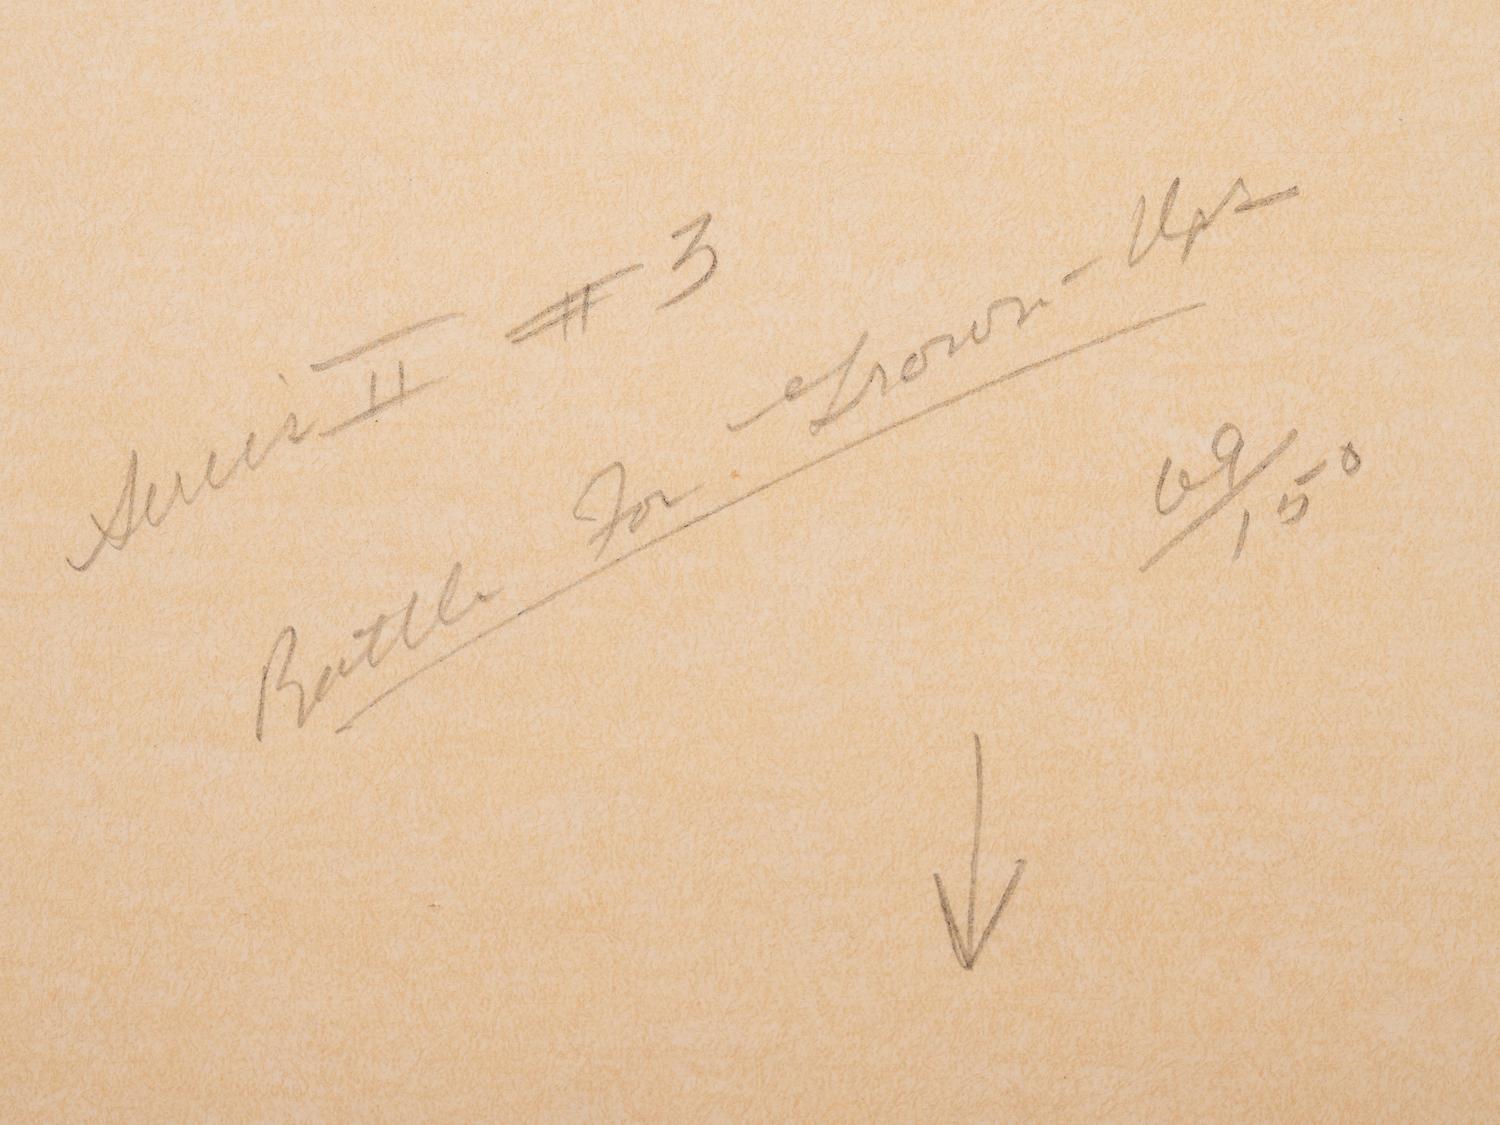 Series II #3
Battle For Grown-Ups
69/150